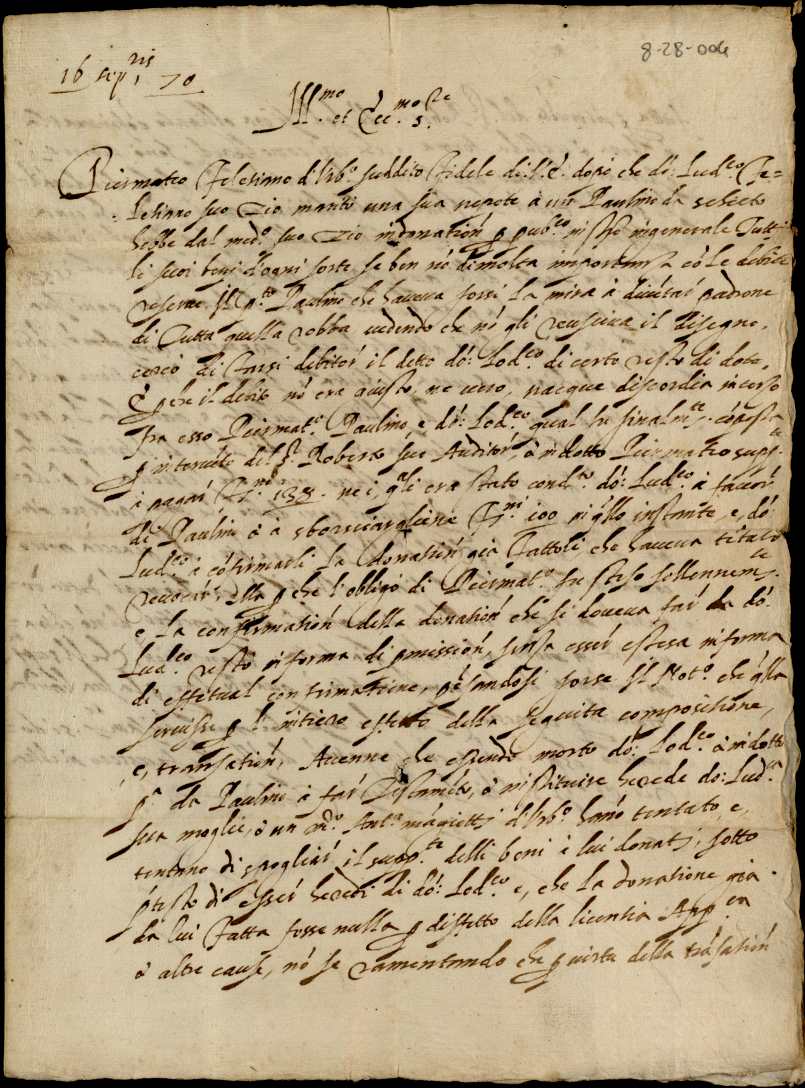 8-28-004
16 sep.ris 70
Ill.mo et Ecc.mo S.re
Piermatteo Felesinno d'Urb.o suddito fidele di V. E. dopò che dō: Lud.co Fe=
=lesinno suo Zio maritò una sua nepote à un Paulino da
hebbe dal med.o suo Zio in donatiōn p pub.co in generale tutti
li suoi beni d'ogni sorte se ben nō di molta importanza cō le debite
reserve. Il p.to Paulino che haveva forsi la mira à divētar padrone
di tutta quella robba vedendo che nō gli reusciva il disegno,
cercò di farsi debitor il detto dō: Lod.co di certo resto di dote,
E pche il debito nō era giusto, ne vero, nacque discordia
fra esso Piermat.o Paulino e dō: Lod.co qual fu finalm.te cōposta
p intervēto del S.r Robertο suo Auditor, è indotto Piermatteo supp.te
à pagar 138 ne i q.li era stato cond.to dō: Lud.co à favor
di Paulino è à sborsciargliene 100 in q̄llo instante, e, dō:
Lud.co à cōfirmarli la donatiōn già fattoli che haveva tētato
revocar, Ma p che l'obligo di Piermat.o fu steso sollennem.te
e la confirmatiōn della donatiōn che si doveva far da dō:
Lud.co restò in forma di pmissiōn, senza esser estesa in forma
di effetual confirmatione, pēsandosi forse il Not.o che q̄lla
servisse p l'intiero effetto della seguita compositione,
e, transatiōn, Avenne che essendo morto dō: Lod.co è indotto
p.a da Paulino à far Testamēto, è instituire herede
sua moglie, è un m.o Ant.o d'Urb.o hano tentato, e,
tentano di spogliar il supp.te delli beni à lui donati, sotto
p̄testo di esser heredi di dō: Lod.co e, che la donatione già
da lui fatta fosse nulla p diffetto della licentia
è altre cause, nō se ramentando che p virtu della trāsatiōn